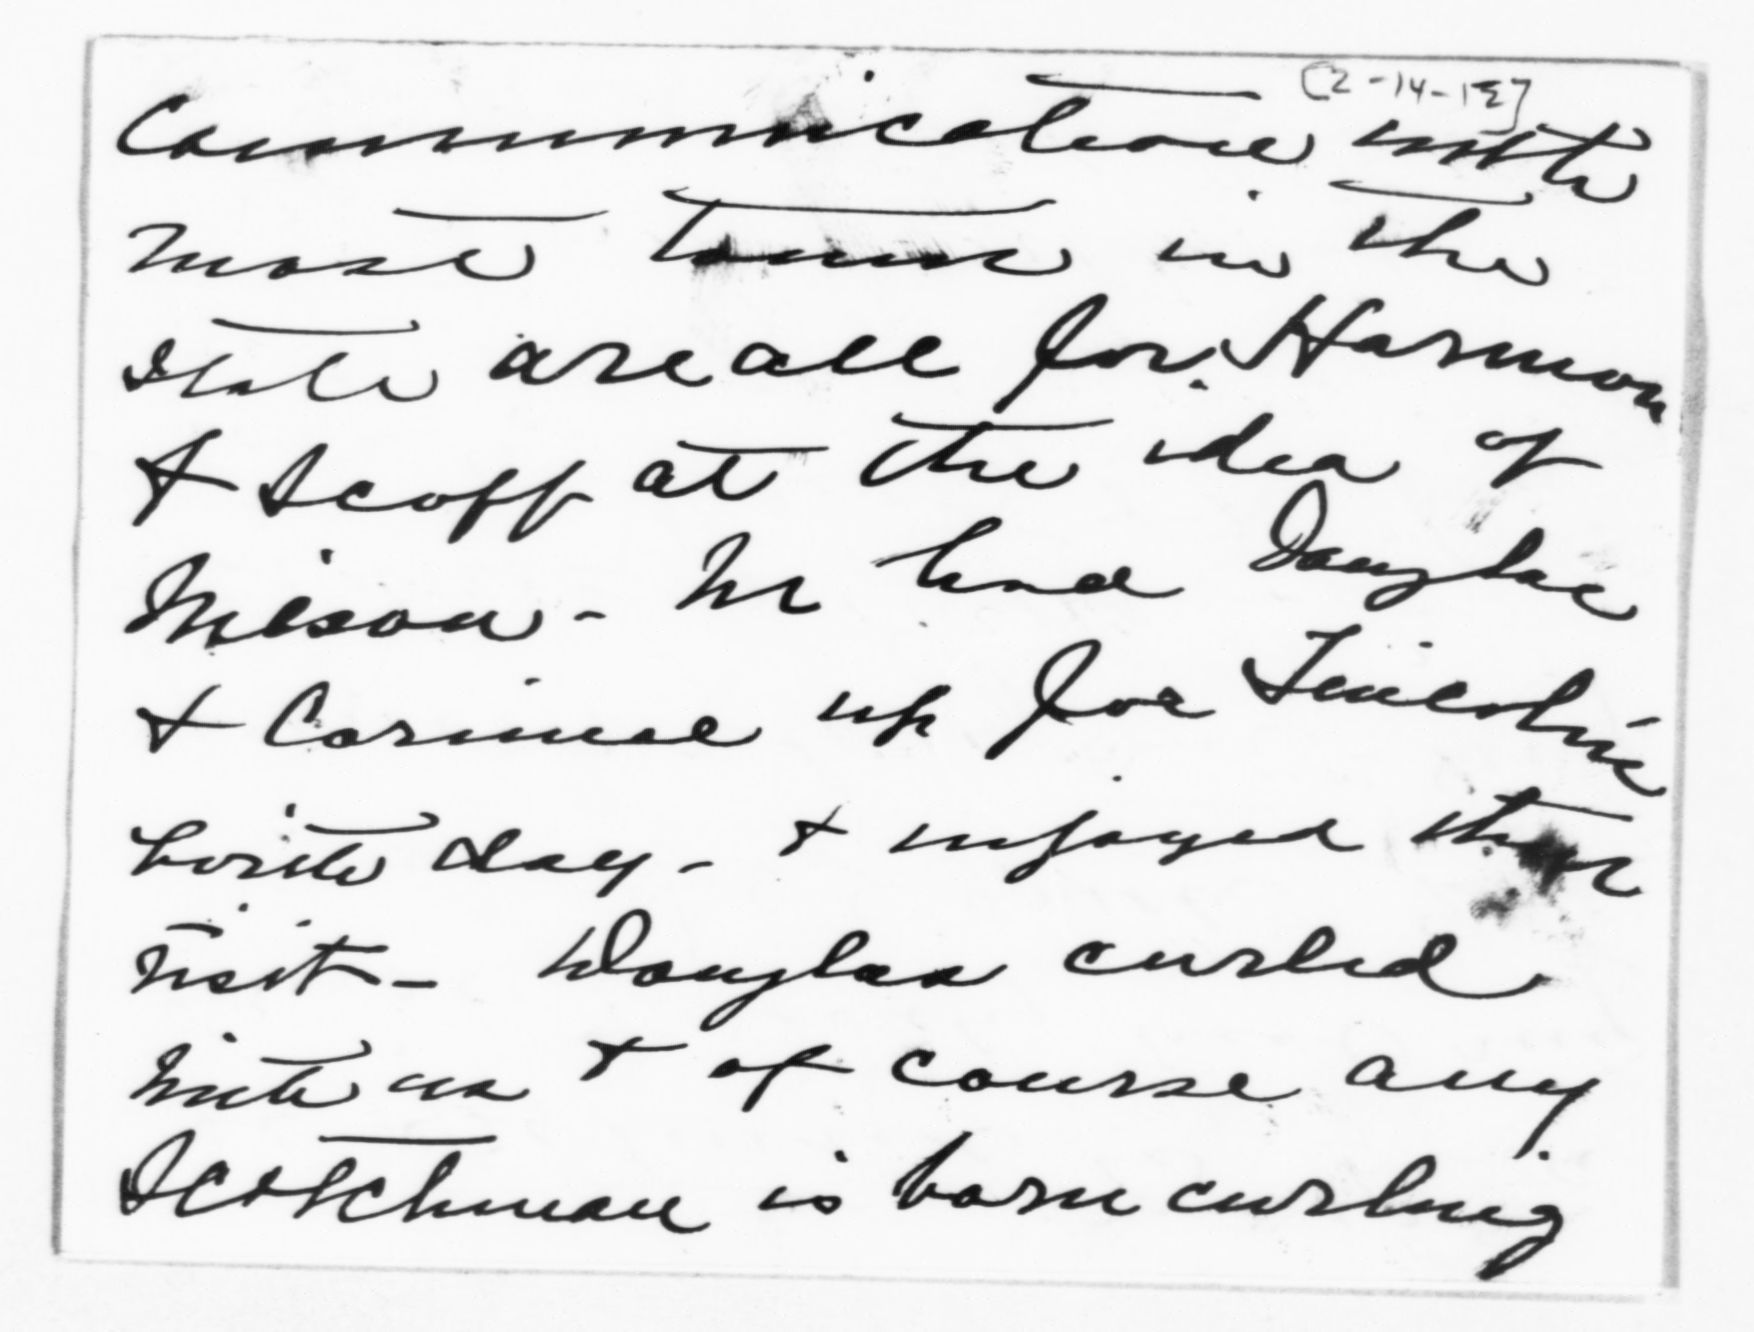 [2-14-12]
Communication with
most towns in the
State are all for Harmon
& scoff at the idea of
Wilson - We had Douglas
& Corinne up for Lincoln's
birth day - & enjoyed their
visit - Douglas curled
with us & of course any
Scotchman is born curling